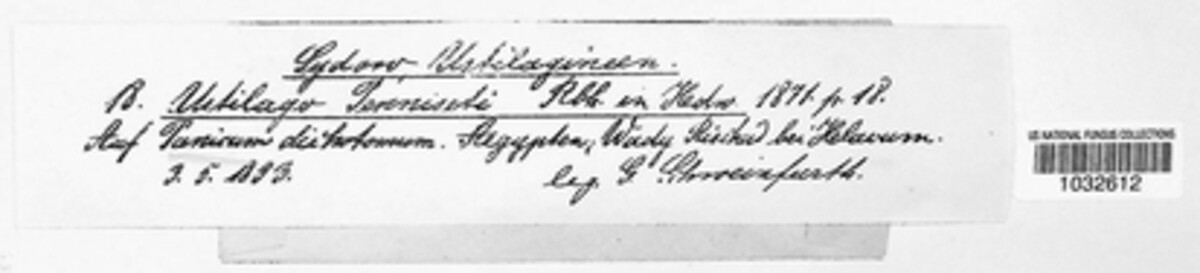 Sydow Ustilagineen.
B. Ustilago Penniseti Rbh. in Hedw. 1871. p. 18.
Auf Panicum dichotomum. Aegypten, Wady bei Helavum.
3. 5. 1893.
leg. G. Schweinfurth.
US NATIONAL FUNGUS COLLECTIONS
1032612